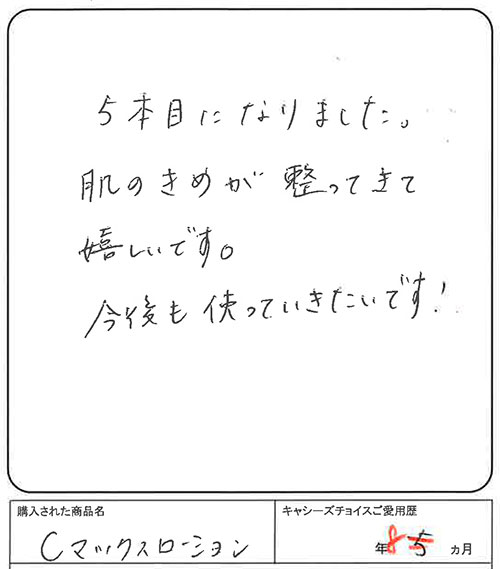 5本目になりました。
肌のきめが整ってきて
嬉しいです。
今後も使っていきたいです!
購入された商品名
Cマックスローション
キャシーズチョイスご愛用歴
年 8 5 ヵ月